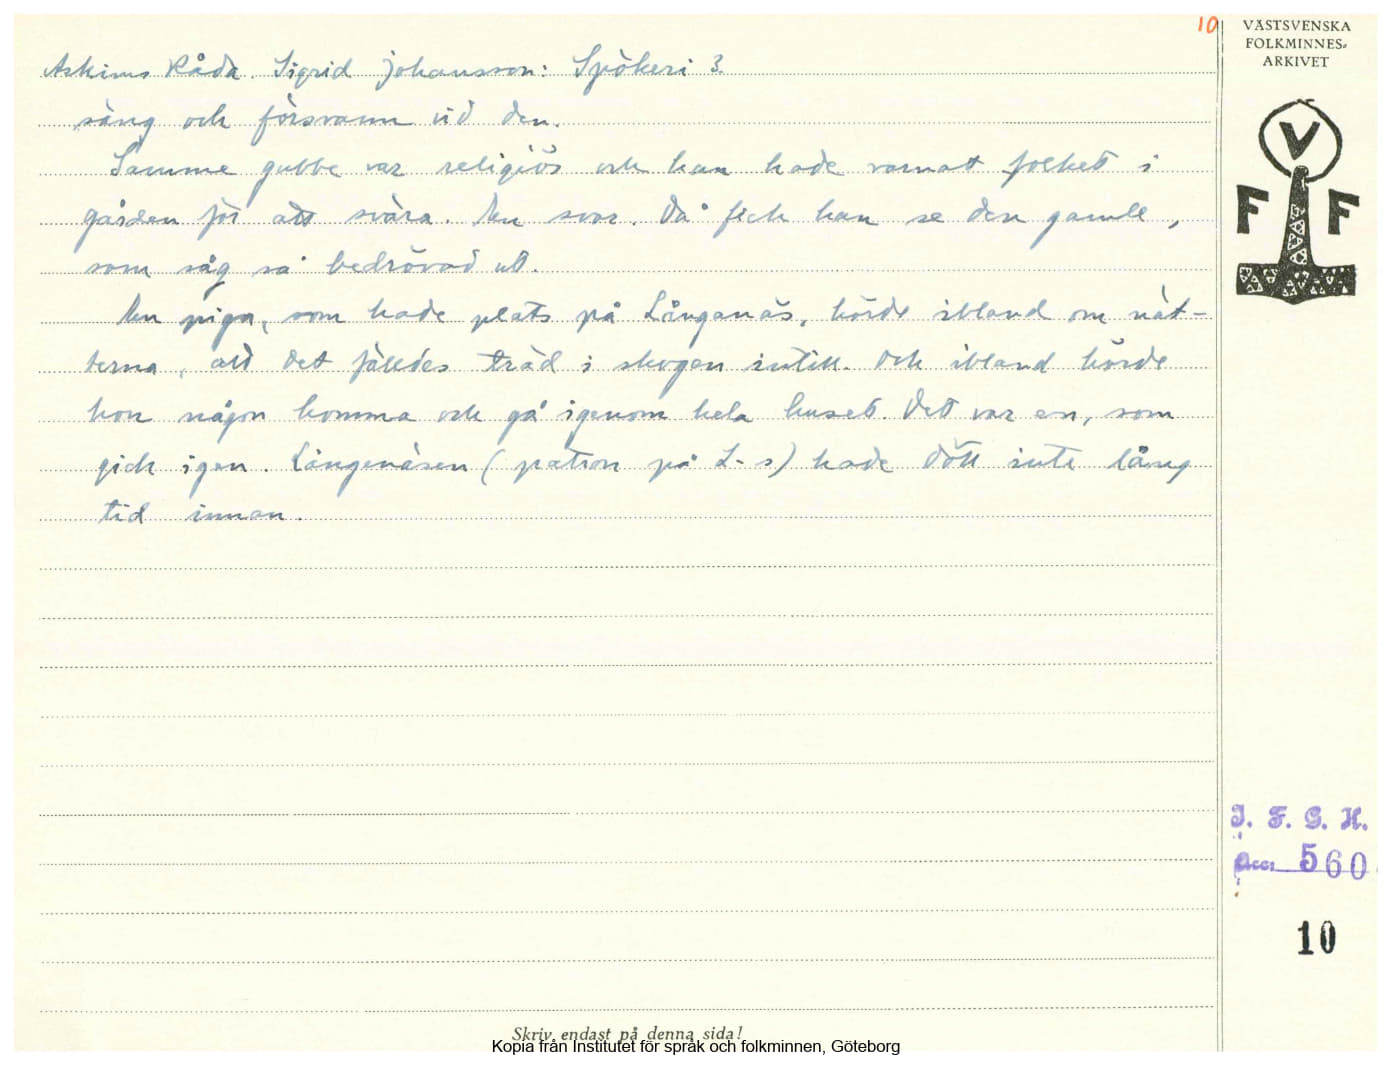 10
VÄSTSVENSKA
FOLKMINNES-
ARKIVET
Askims Råda. Sigrid Johansson: Spökeri 3.
säng och försvann vid den.
Samme gubbe var religiös och han hade varnat folket i
gården för att svära. En svor. Då fick han se den gamle,
som såg så bedrövad ut.
En piga, som hade plats på Långanäs, hörde ibland om nät-
terna, att det fälldes träd i skogen intill. Och ibland hörde
hon någon komma och gå igenom hela huset. Det var en, som
gick igen. Långenäsen (patron på L-s) hade dött inte lång
tid innan.
V
F F
I. F. G. H.
Acc. 560
10
Skriv endast på denna sida!
Kopia från Institutet för språk och folkminnen, Göteborg